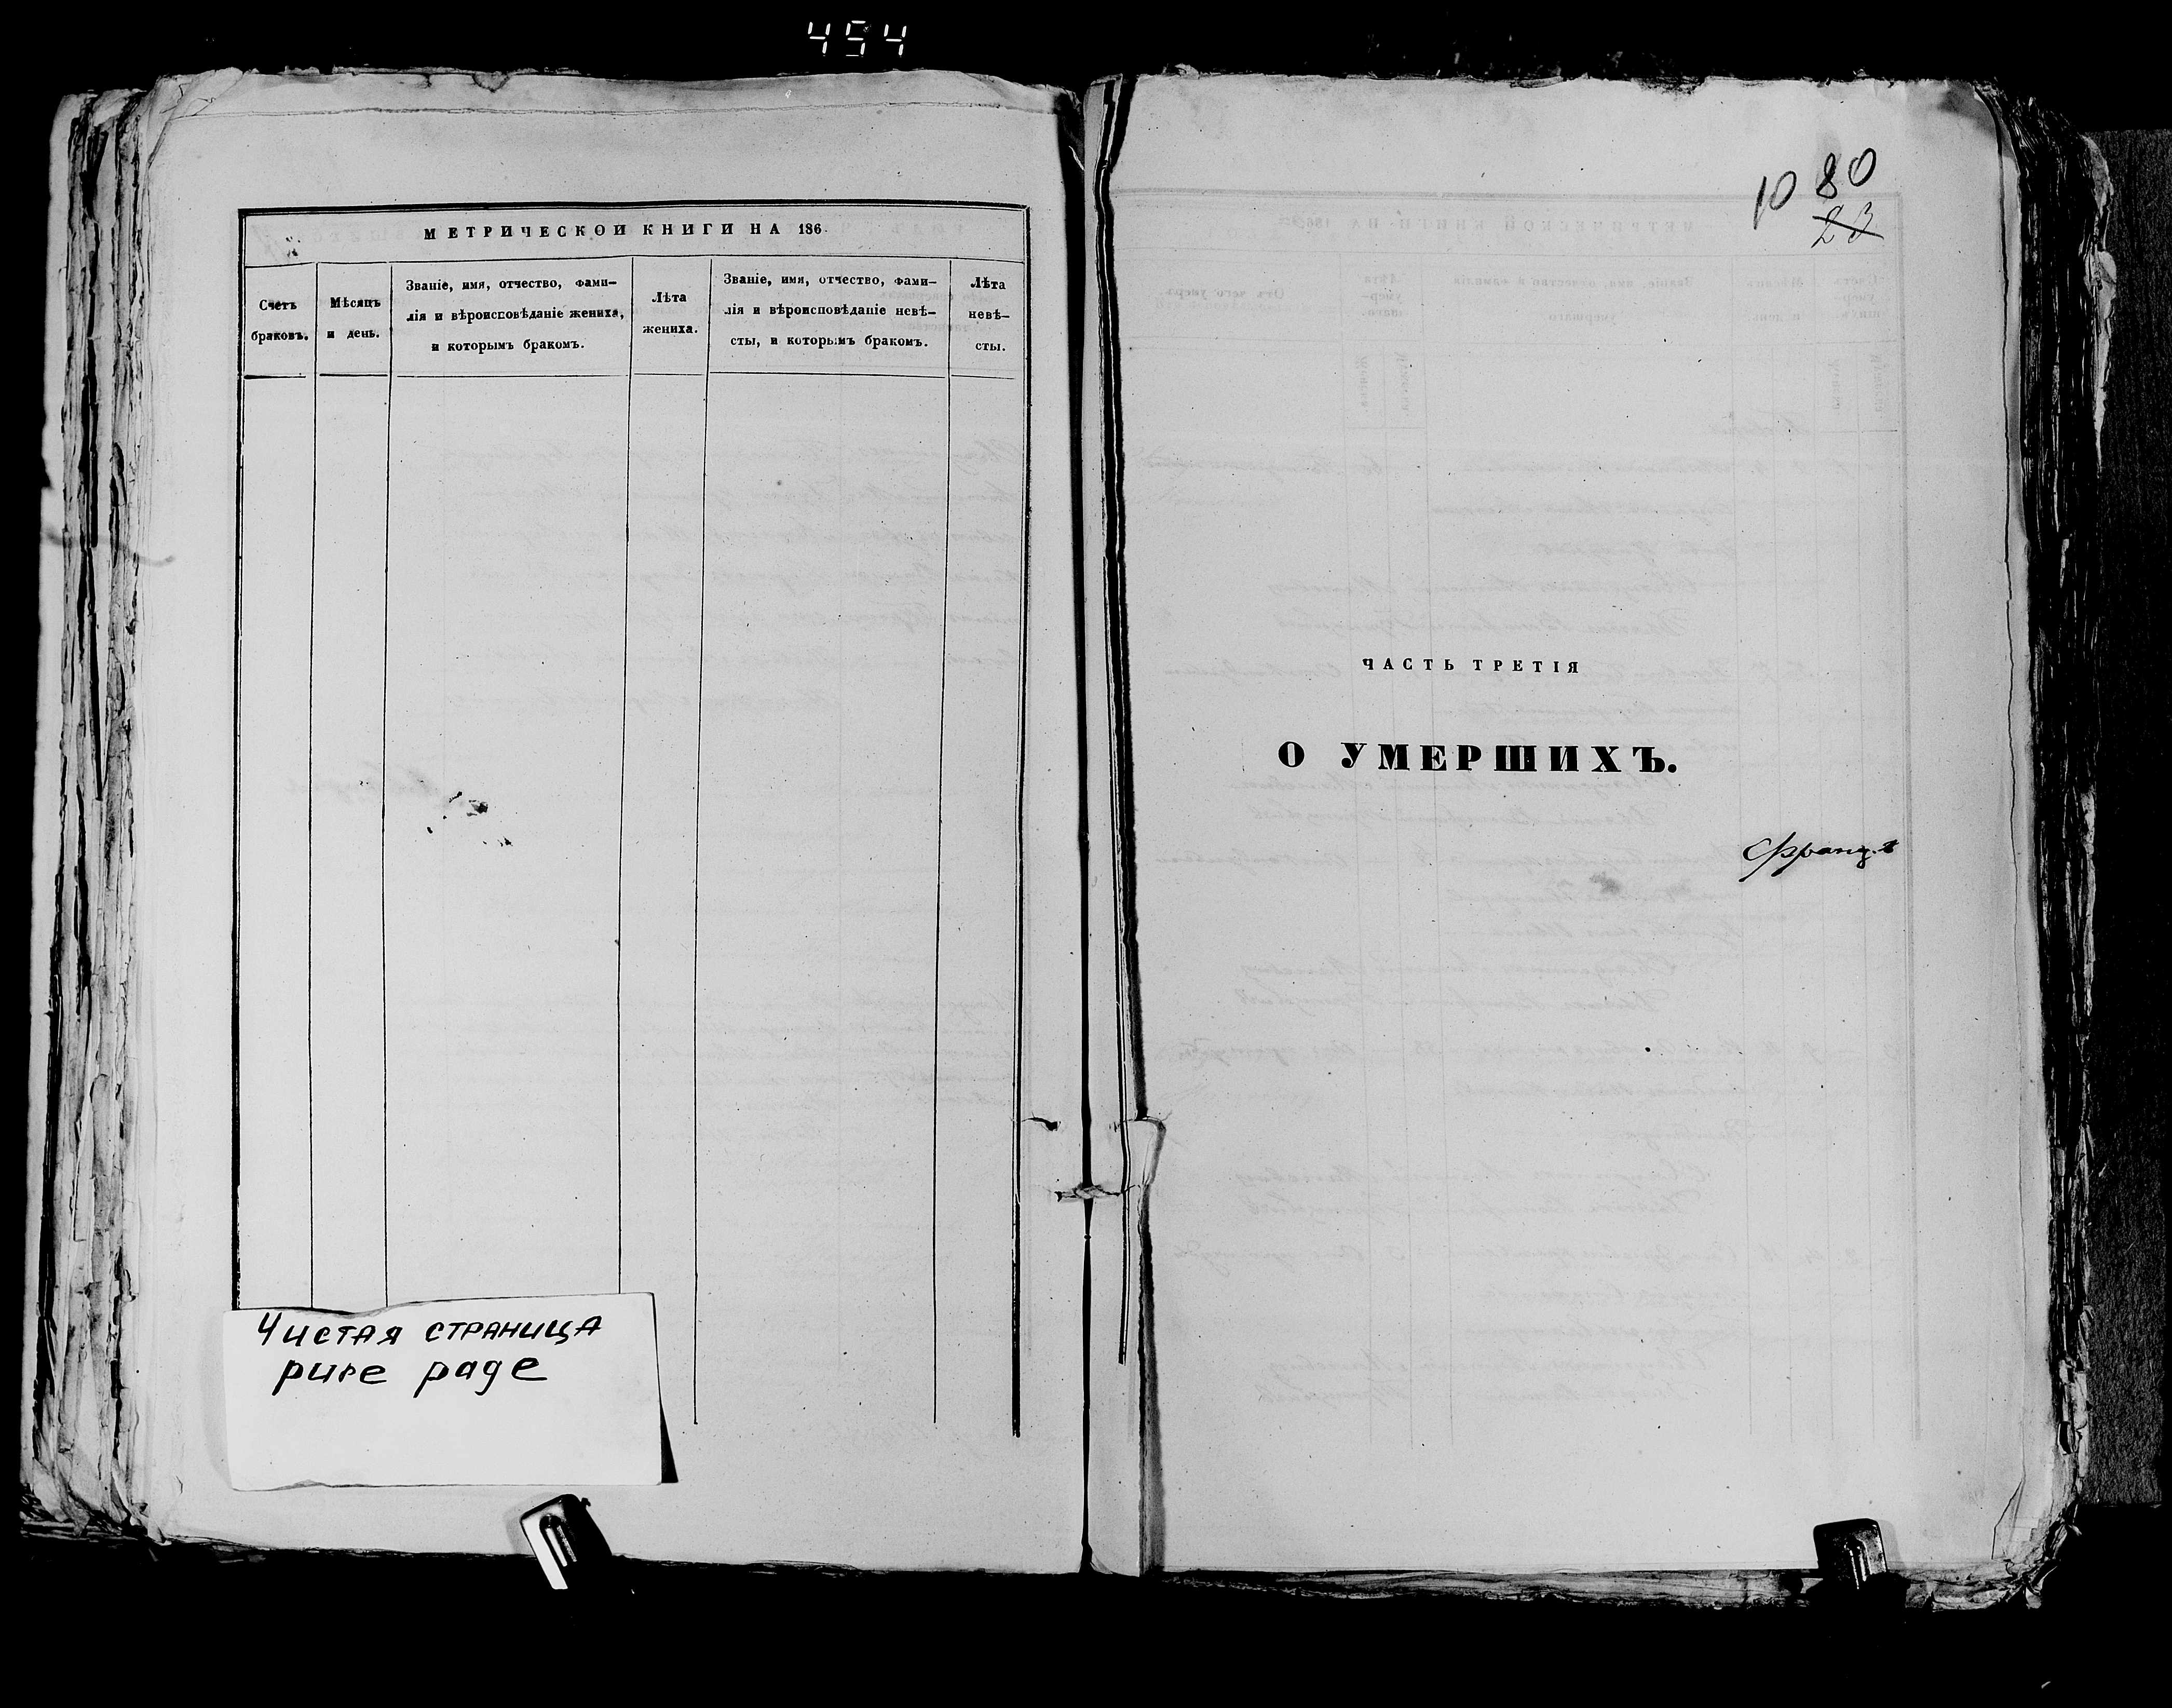 454
МЕТРИЧЕСКОЙ КНИГИ НА 186
Счетъ
браковъ.
Мѣсяцъ
и день.
Званіе, имя, отчество, фами-
лія и вѣроисповѣданіе жениха,
и которымъ бракомъ.
Лѣта
жениха.
Званіе, имя, отчество, фами-
лія и вѣроисповѣданіе невѣ-
сты, и которымъ бракомъ.
Лѣта
невѣ-
сты.
Чистая страница
pure page
10 80
23
ЧАСТЬ ТРЕТІЯ
О УМЕРШИХЪ.